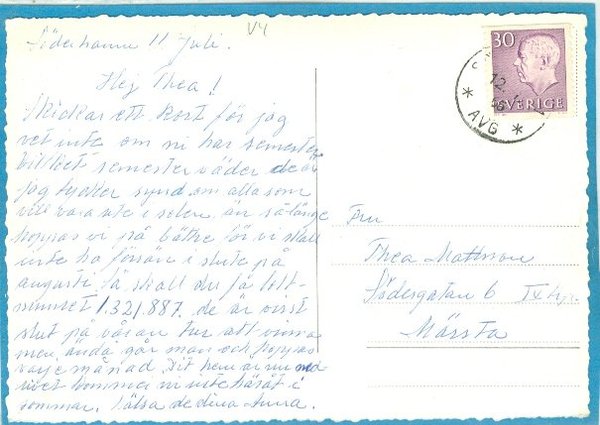 V4
Söderhamn 11 Juli.
Hej Thea!
Skickar ett kort för jag
vet inte om ni har semester
vilket semester väder de är
jag tycker synd om alla som
vill vara ute i solen än så länge
hoppas vi på bättre för vi skall
inte ha förrän i slute på
augusti så skall du få lott-
numret 1.321.887. de är visst
slut på våran tur att vinna
men ändå går man och hoppas
varje månad. Ditt hem är nu
rivet kommer ni inte häråt i
sommar. Hälsa de dina Anna.
30
SVERIGE
12
AVG
Fru
Thea Mattsson
Södergatan 6
Märsta